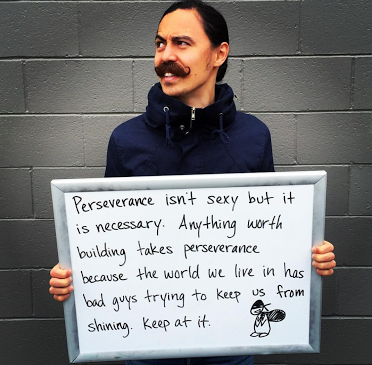 Perseverance isn't sexy but it
is necessary. Anything worth
building takes perseverance
because the world we live in has
bad guys trying to keep us from
shining. Keep at it.